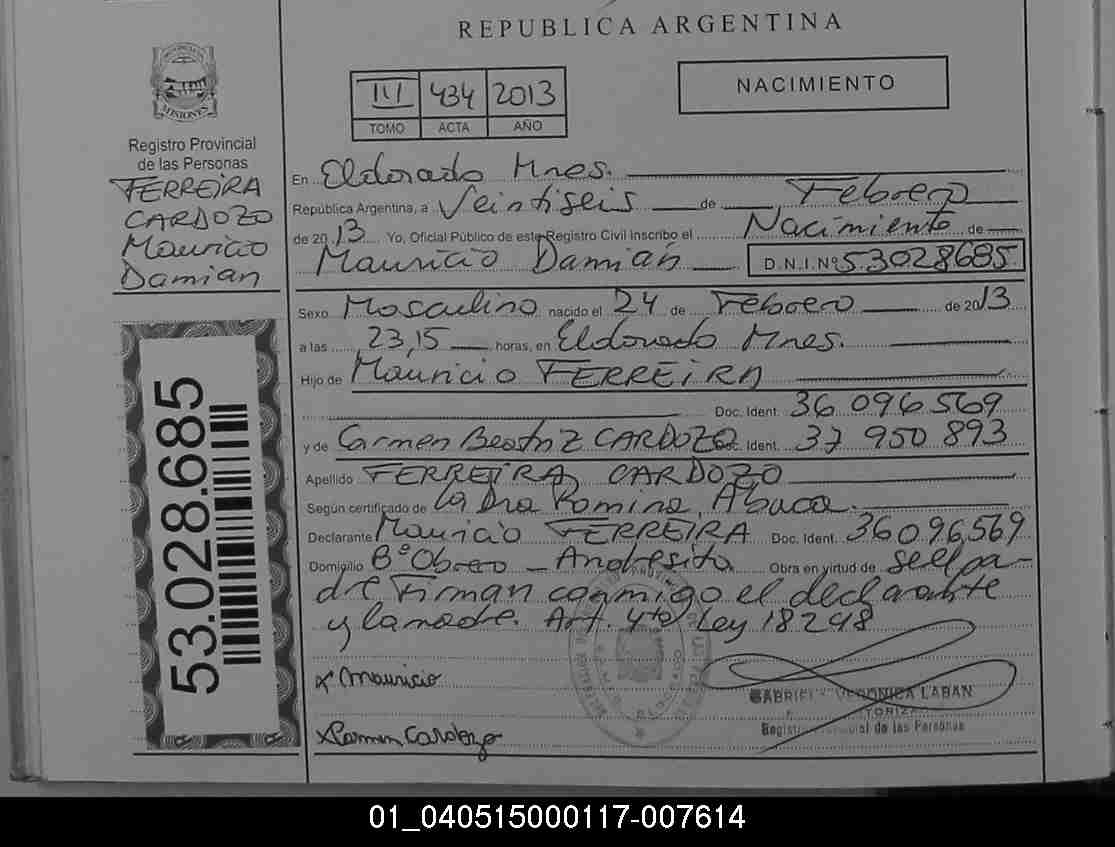 REPUBLICA ARGENTINA
MISIONES
Registro Provincial
de las Personas
FERREIRA
CARDOZO
Mauricio
Damian
53.028.685
III 434 2013
TOMO ACTA AÑO
NACIMIENTO
En Eldorado Mnes.
República Argentina, a Veintiseis de Febrero
de 2013 Yo, Oficial Público de este Registro Civil Inscribo el Nacimiento de
Mauricio Damián D.N.I.Nº 53028685
Sexo Masculino nacido el 24 de Febrero de 2013
a las 23,15 horas, en Eldorado Mnes.
Hijo de Mauricio FERREIRA
Doc. Ident. 36 096 569
y de Carmen Beatriz CARDOZO Doc. Ident. 37 950 893
Apellido FERREIRA CARDOZO
Según certificado de la Dra Romina Abaca
Declarante Mauricio FERREIRA Doc. Ident. 36 096,569
Domicilio Bº Obrero - Andresito Obra en virtud de ser el pa-
dre Firman conmigo el declarante
y la madre. Art. 4to Ley 18248
x Mauricio
x Carmen Cardozo
VERONICA LABAN
de las Personas
01_040515000117-007614